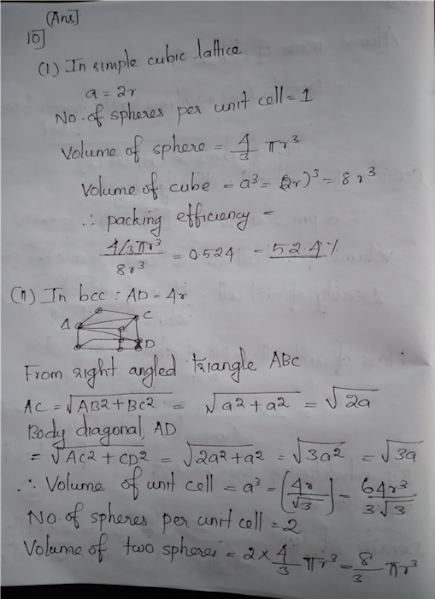 (Ans]
10]
(1) In simple cubic lattice
a = 2r
No. of spheres per unit cell = 1
Volume of sphere = 4/3 πr³
Volume of cube = a³ = (2r)³ = 8r³
∴ packing efficiency =
4/3πr³ / 8r³ = 0.524 = 52.4%
(11) In bcc : AD = 4r
A C
D
From right angled triangle ABC
AC = √AB2+BC2 = √a²+a² = √2a
Body diagonal, AD
= √AC2+CD2 = √2a²+a² = √3a² = √3a
∴ Volume of unit cell = a³ = (4r/√3) = 64r³/3√3
No. of spheres per unit cell = 2
Volume of two spheres = 2 × 4/3 πr³ = 8/3 πr³